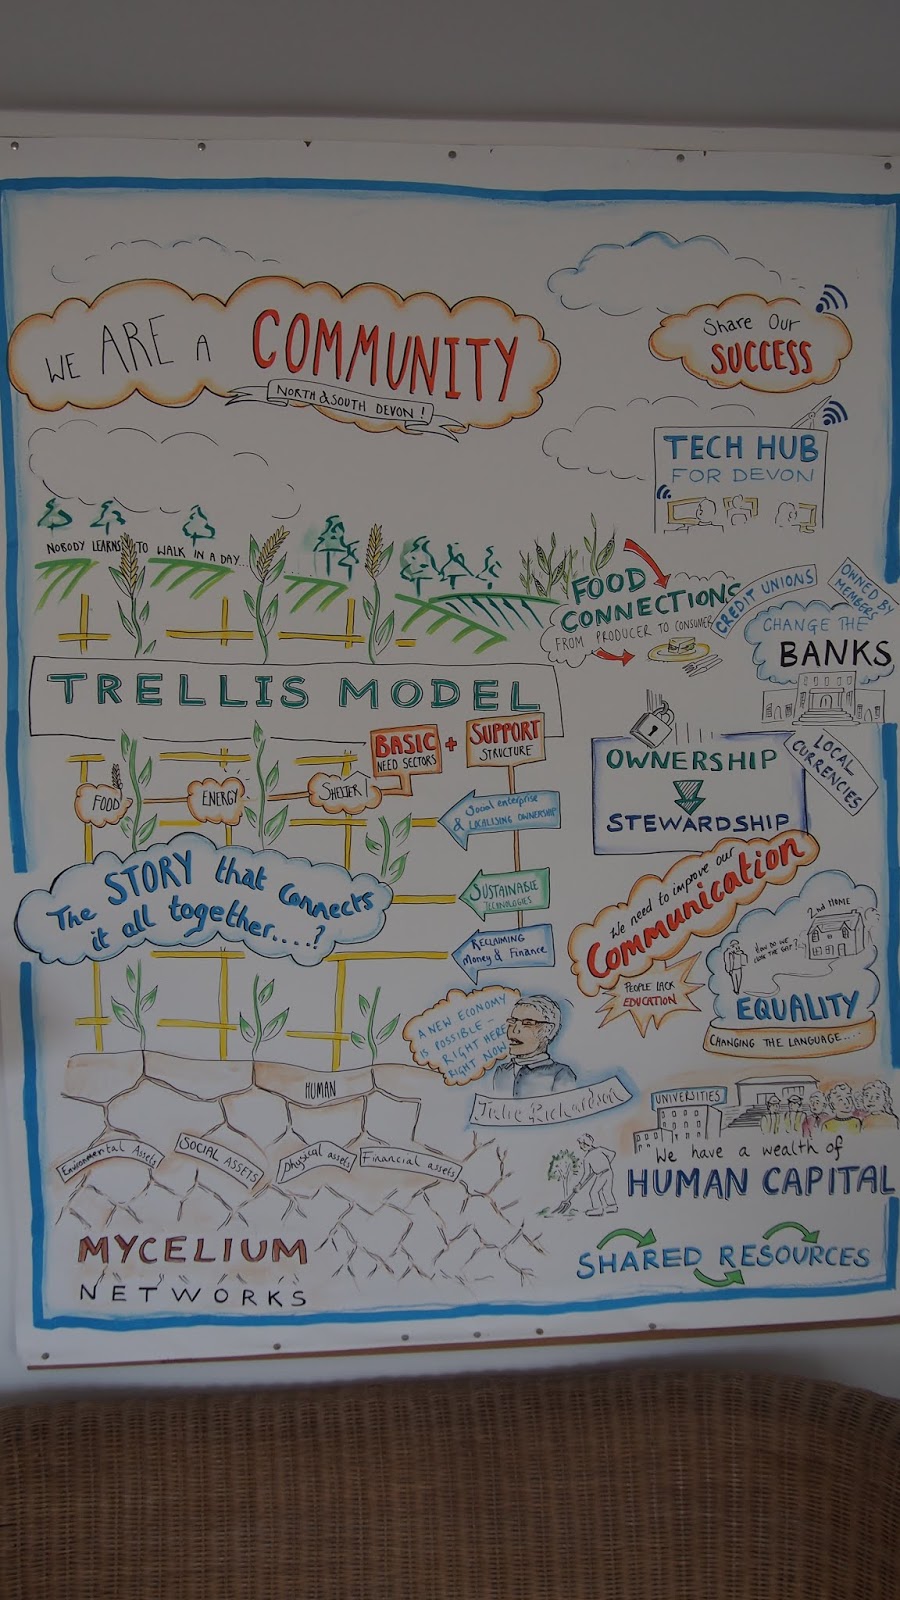 WE ARE A COMMUNITY
NORTH & SOUTH DEVON!
Share Our
SUCCESS
TECH HUB
FOR DEVON
NOBODY LEARNS TO WALK IN A DAY...
FOOD
CONNECTIONS
FROM PRODUCER TO CONSUMER
CREDIT UNIONS
OWNED BY
MEMBERS
CHANGE THE
BANKS
LOCAL
CURRENCIES
TRELLIS MODEL
BASIC
NEED SECTORS
+
SUPPORT
STRUCTURE
FOOD
ENERGY
SHELTER!
Social enterprise
& LOCALISING OWNERSHIP
SUSTAINABLE
TECHNOLOGIES
RECLAIMING
Money & Finance
OWNERSHIP
STEWARDSHIP
The STORY that connects
it all together.....?
We need to improve our
Communication
PEOPLE LACK
EDUCATION
2nd HOME
HOW DO WE
CLOSE THE GAP?
EQUALITY
CHANGING THE LANGUAGE....
A NEW ECONOMY
IS POSSIBLE –
RIGHT HERE
RIGHT NOW
Julie Richardson
HUMAN
Environmental Assets
SOCIAL ASSETS
physical assets
Financial assets
MYCELIUM
NETWORKS
UNIVERSITIES
We have a wealth of
HUMAN CAPITAL
SHARED RESOURCES